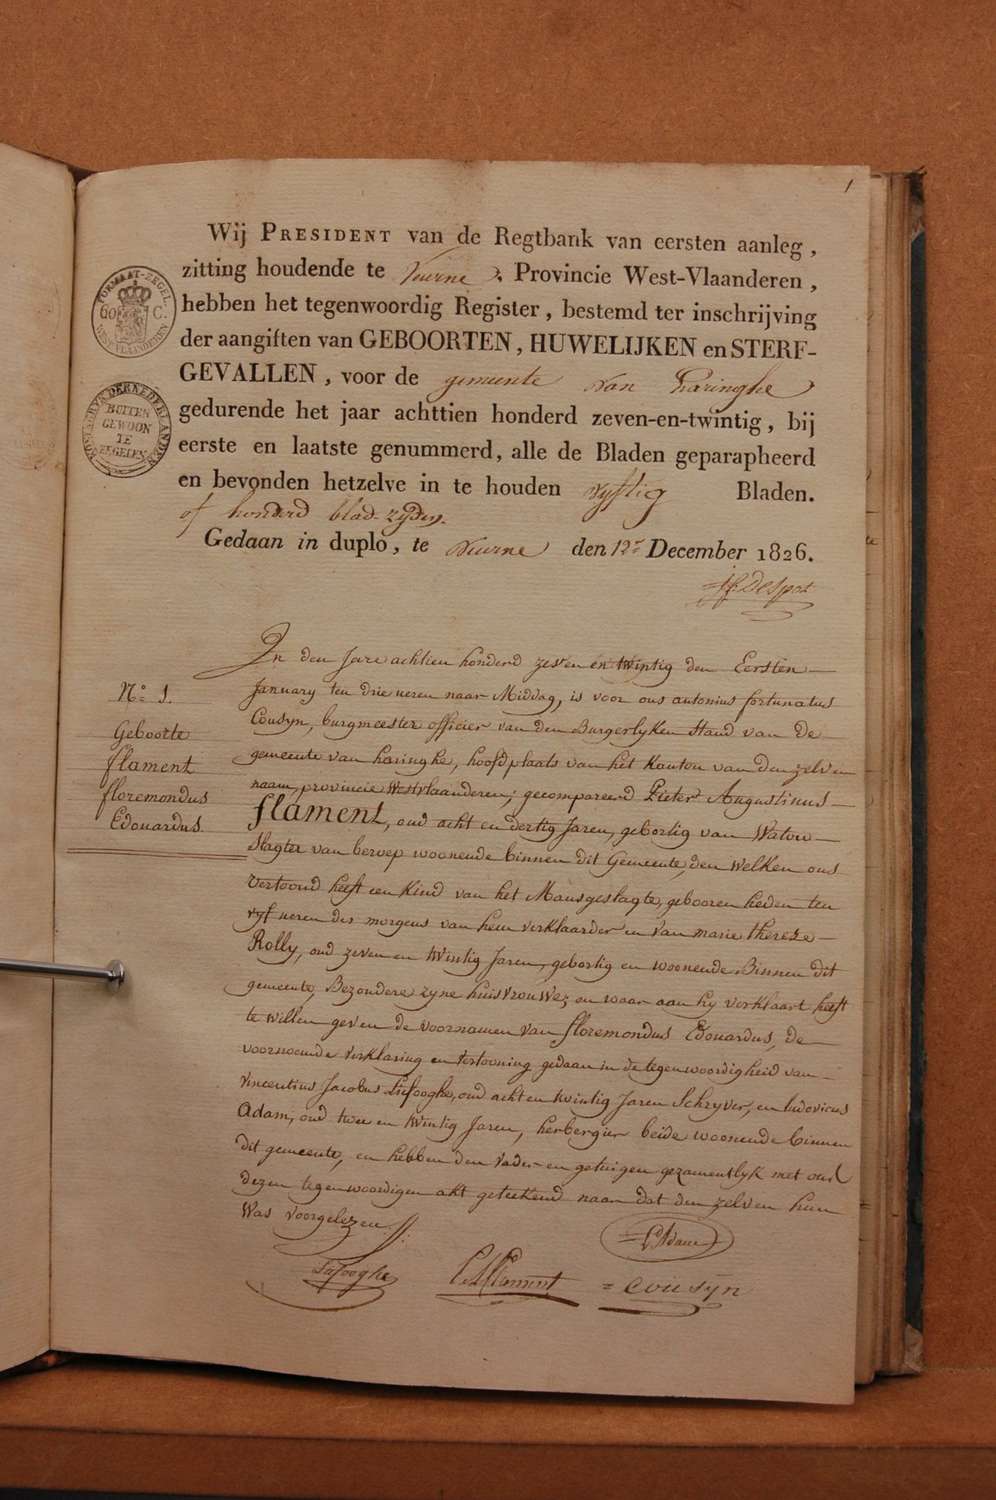 1
Wij PRESIDENT van de Regtbank van eersten aanleg,
zitting houdende te Veurne, Provincie West-Vlaanderen,
hebben het tegenwoordig Register, bestemd ter inschrijving
der aangiften van GEBOORTEN, HUWELIJKEN en STERF-
GEVALLEN, voor de gemeente van Haringhe
gedurende het jaar achttien honderd zeven-en-twintig, bij
eerste en laatste genummerd, alle de Bladen geparapheerd
en bevonden hetzelve in te houden vyftig Bladen.
of honderd blad-zijden.
Gedaan in duplo, te Veurne den 12e December 1826.
FORMAAT-ZEGEL
60 C.
WEST-VLAANDEREN
KONINGRYK DER NEDERLANDEN
BUITEN
GEWOON
TE
ZEGELEN
N.o 1.
Geboorte
flament
floremondus
Edouardus
In den Jare achtien honderd zeven en twintig den Eersten
January ten drie ueren naar Middag, is voor ons antonius fortunatus
Cousyn, burgmeester officier van den Burgerlyken stand van de
gemeente van haringhe, hoofdplaats van het kanton van den zelven
naam, provincie Westvlaanderen; gecompareerd Pieter Augustinus
flament, oud acht en dertig Jaren, geboortig van Watou
slagter van beroep woonende binnen dit Gemeente, den welken ons
vertoond heeft een kind van het Mansgeslagte, gebooren heden ten
vyf ueren des morgens van hem verklaarder en van marie therese
Rolly, oud zeven en twintig Jaren, gebortig en woonende Binnen dit
gemeente, Bezondere zyne huisvrouwe, en waar aan hy verklaart heeft
te willen geven de voornamen van floremondus Edouardus, de
voornoemde verklaring en vertooning gedaan in de tegenwoordigheid van
vincentius Jacobus Lafooghe, oud acht en twintig Jaren Schryver, en ludovicus
Adam, oud twee en twintig Jaren, herbergier beide woonende binnen
dit gemeente, en hebben den vader en getuigen gezamentlyk met ons
dezen tegenwoordigen akt geteekend naar dat den zelven hun
was voorgelezen
L Adam
Lafooghe
P A flament
= cousÿn